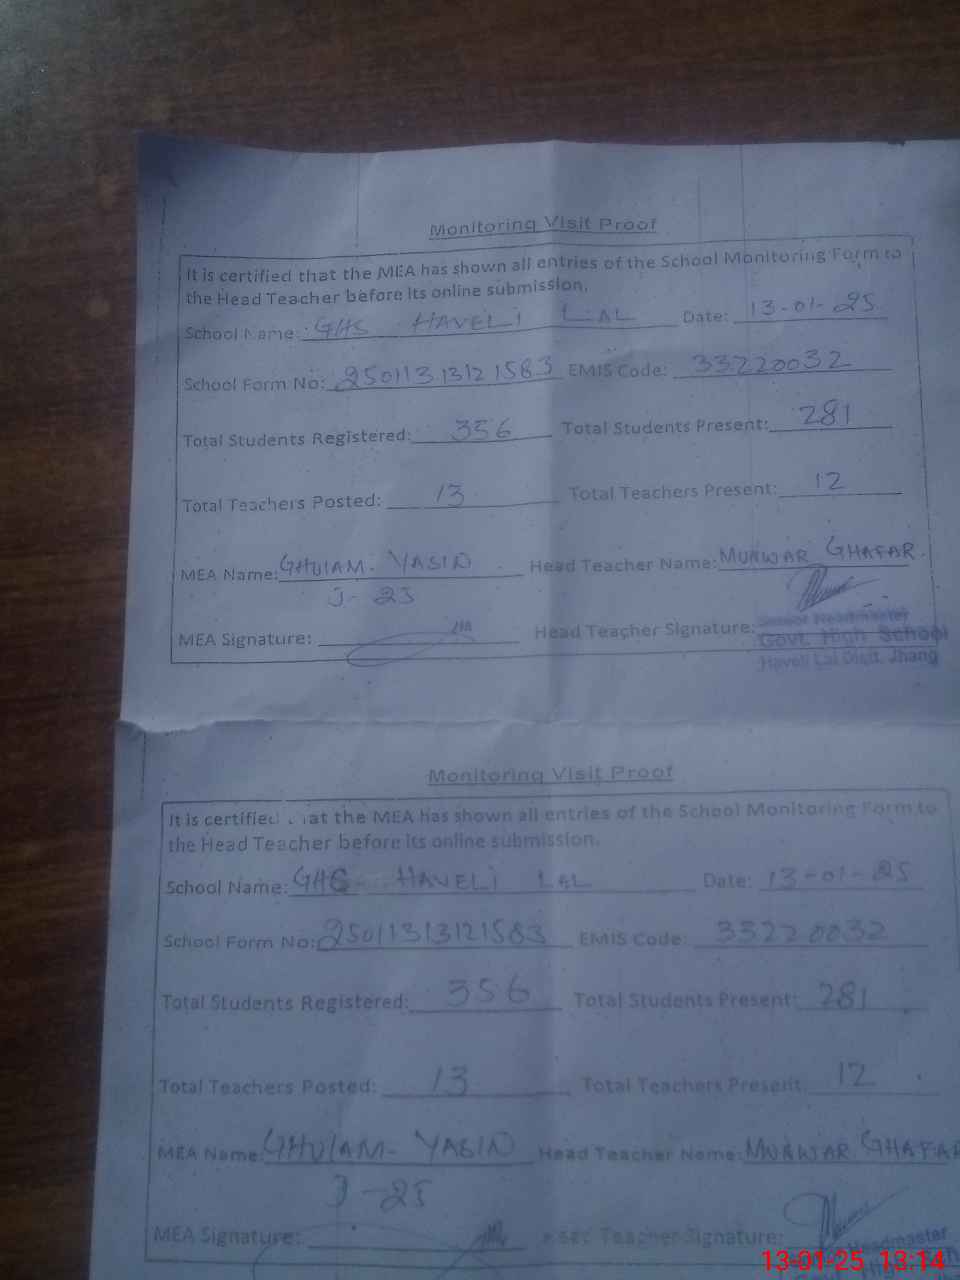 Monitoring Visit Proof
It is certified that the MEA has shown all entries of the School Monitoring Form to
the Head Teacher before its online submission.
School Name: GHS HAVELI LAL Date: 13-01-25
School Form No: 25011313121583 EMIS Code: 33220032
Total Students Registered: 356 Total Students Present: 281
Total Teachers Posted: 13 Total Teachers Present: 12
MEA Name: GHULAM YASIN Head Teacher Name: MUNWAR GHAFAR
J-25
MEA Signature: Head Teacher Signature:
Senior Headmaster
Govt. High School
Haveli Lal Distt. Jhang
Monitoring Visit Proof
It is certified that the MEA has shown all entries of the School Monitoring Form to
the Head Teacher before its online submission.
School Name: GHS HAVELI LAL Date: 13-01-25
School Form No: 25011313121583 EMIS Code: 33220032
Total Students Registered: 356 Total Students Present: 281
Total Teachers Posted: 13 Total Teachers Present: 12
MEA Name: GHULAM YASIN Head Teacher Name: MUNWAR GHAFAR
J-25
MEA Signature: Teacher Signature:
Headmaster
13-01-25 13:14